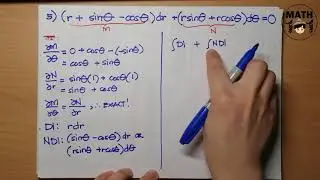 5) (r + sinθ - cosθ)dr + (rsinθ + rcosθ)dθ = 0
M N
∂M/∂θ = 0 + cosθ - (-sinθ)
= cosθ + sinθ
∂N/∂r = sinθ(1) + cosθ(1)
= sinθ + cosθ
∂M/∂θ = ∂N/∂r, ∴ EXACT!
DI: rdr
NDI: (sinθ - cosθ)dr or
(rsinθ + rcosθ)dθ
∫DI + ∫NDI
MATH